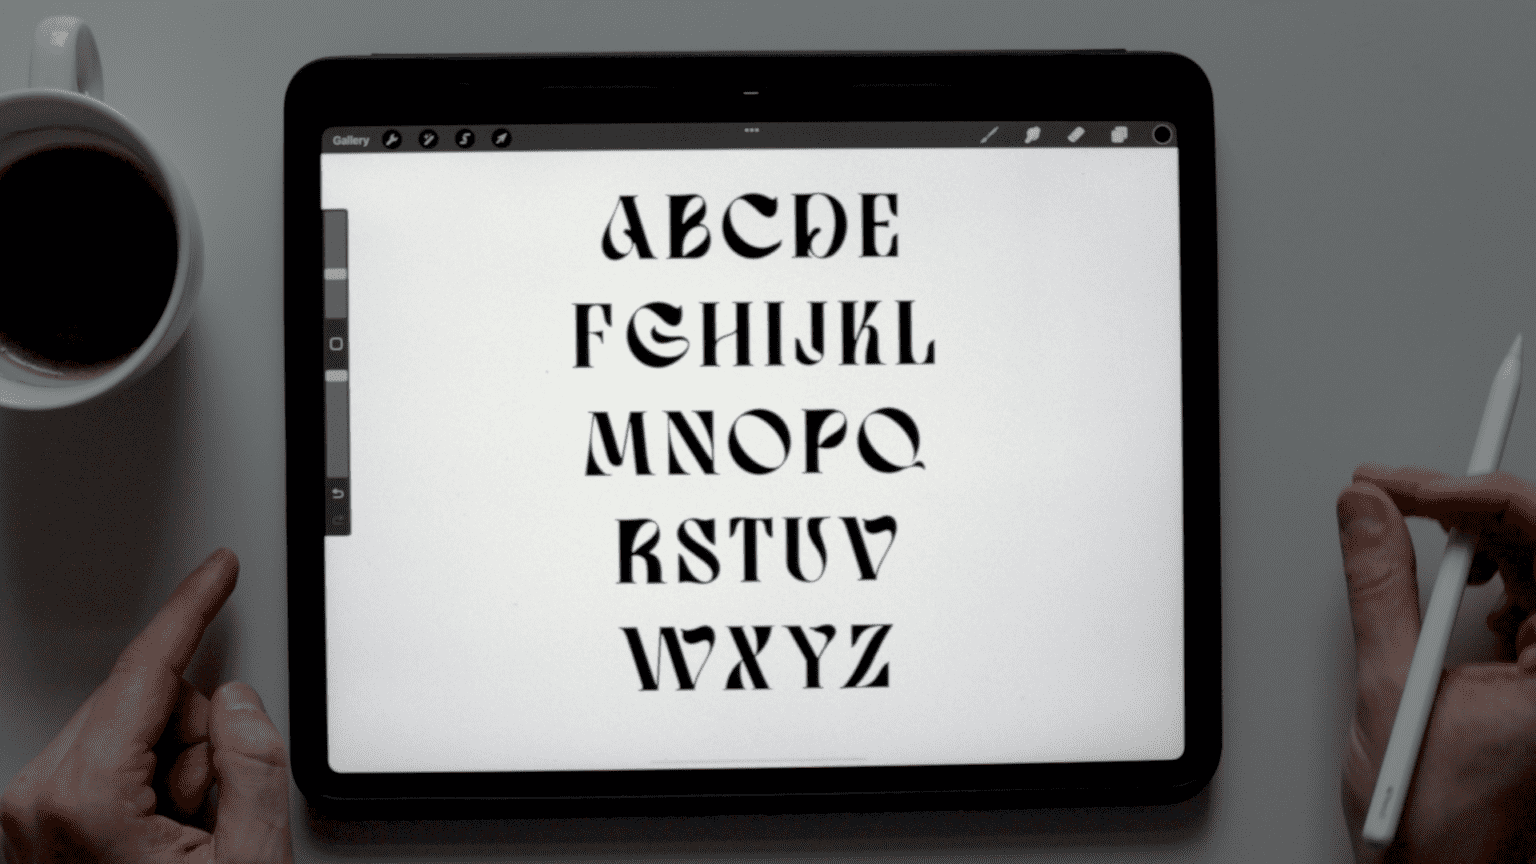 Gallery
ABCDE
FGHIJKL
MNOPQ
RSTUV
WXYZ